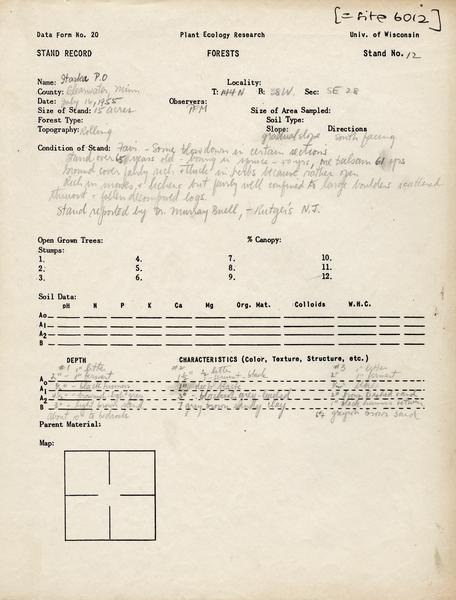 [= site 6012]
Data Form No. 20 Plant Ecology Research Univ. of Wisconsin
STAND RECORD FORESTS Stand No. 12
Name: Itaska P.O Locality:
County: Clearwater, Minn T: 144N R: 38W. Sec: SE 28
Date: July 16, 1955 Observers: PFM
Size of Stand: 15 acres Size of Area Sampled:
Forest Type: Soil Type:
Topography: Rolling Slope: gradual slope Directions South facing
Condition of Stand: Fair. - Some blowdown in certain sections
Stand over years old - boring in spruce - 90 yrs, one balsam 61 yrs
Ground cover fairly rich + thick in herbs because rather open
Rich in mosses + lichens but fairly well confined to large boulders scattered
throout + fallen decomposed logs.
Stand reported by Dr. Murray Buell, - Rutger's N.J.
Open Grown Trees: % Canopy:
Stumps:
1. 4. 7. 10.
2. 5. 8. 11.
3. 6. 9. 12.
Soil Data:
pH N P K Ca Mg Org. Mat. Colloids W.H.C.
Ao
A1
A2
B
DEPTH CHARACTERISTICS (Color, Texture, Structure, etc.)
#1 1" litter #2 litter #3 1" litter
2" ferment black ferment
Ao black humus
A1
A2
B 7 grey brown sandy clay
About 10" to bedrock grayish brown sand
Parent Material:
Map: